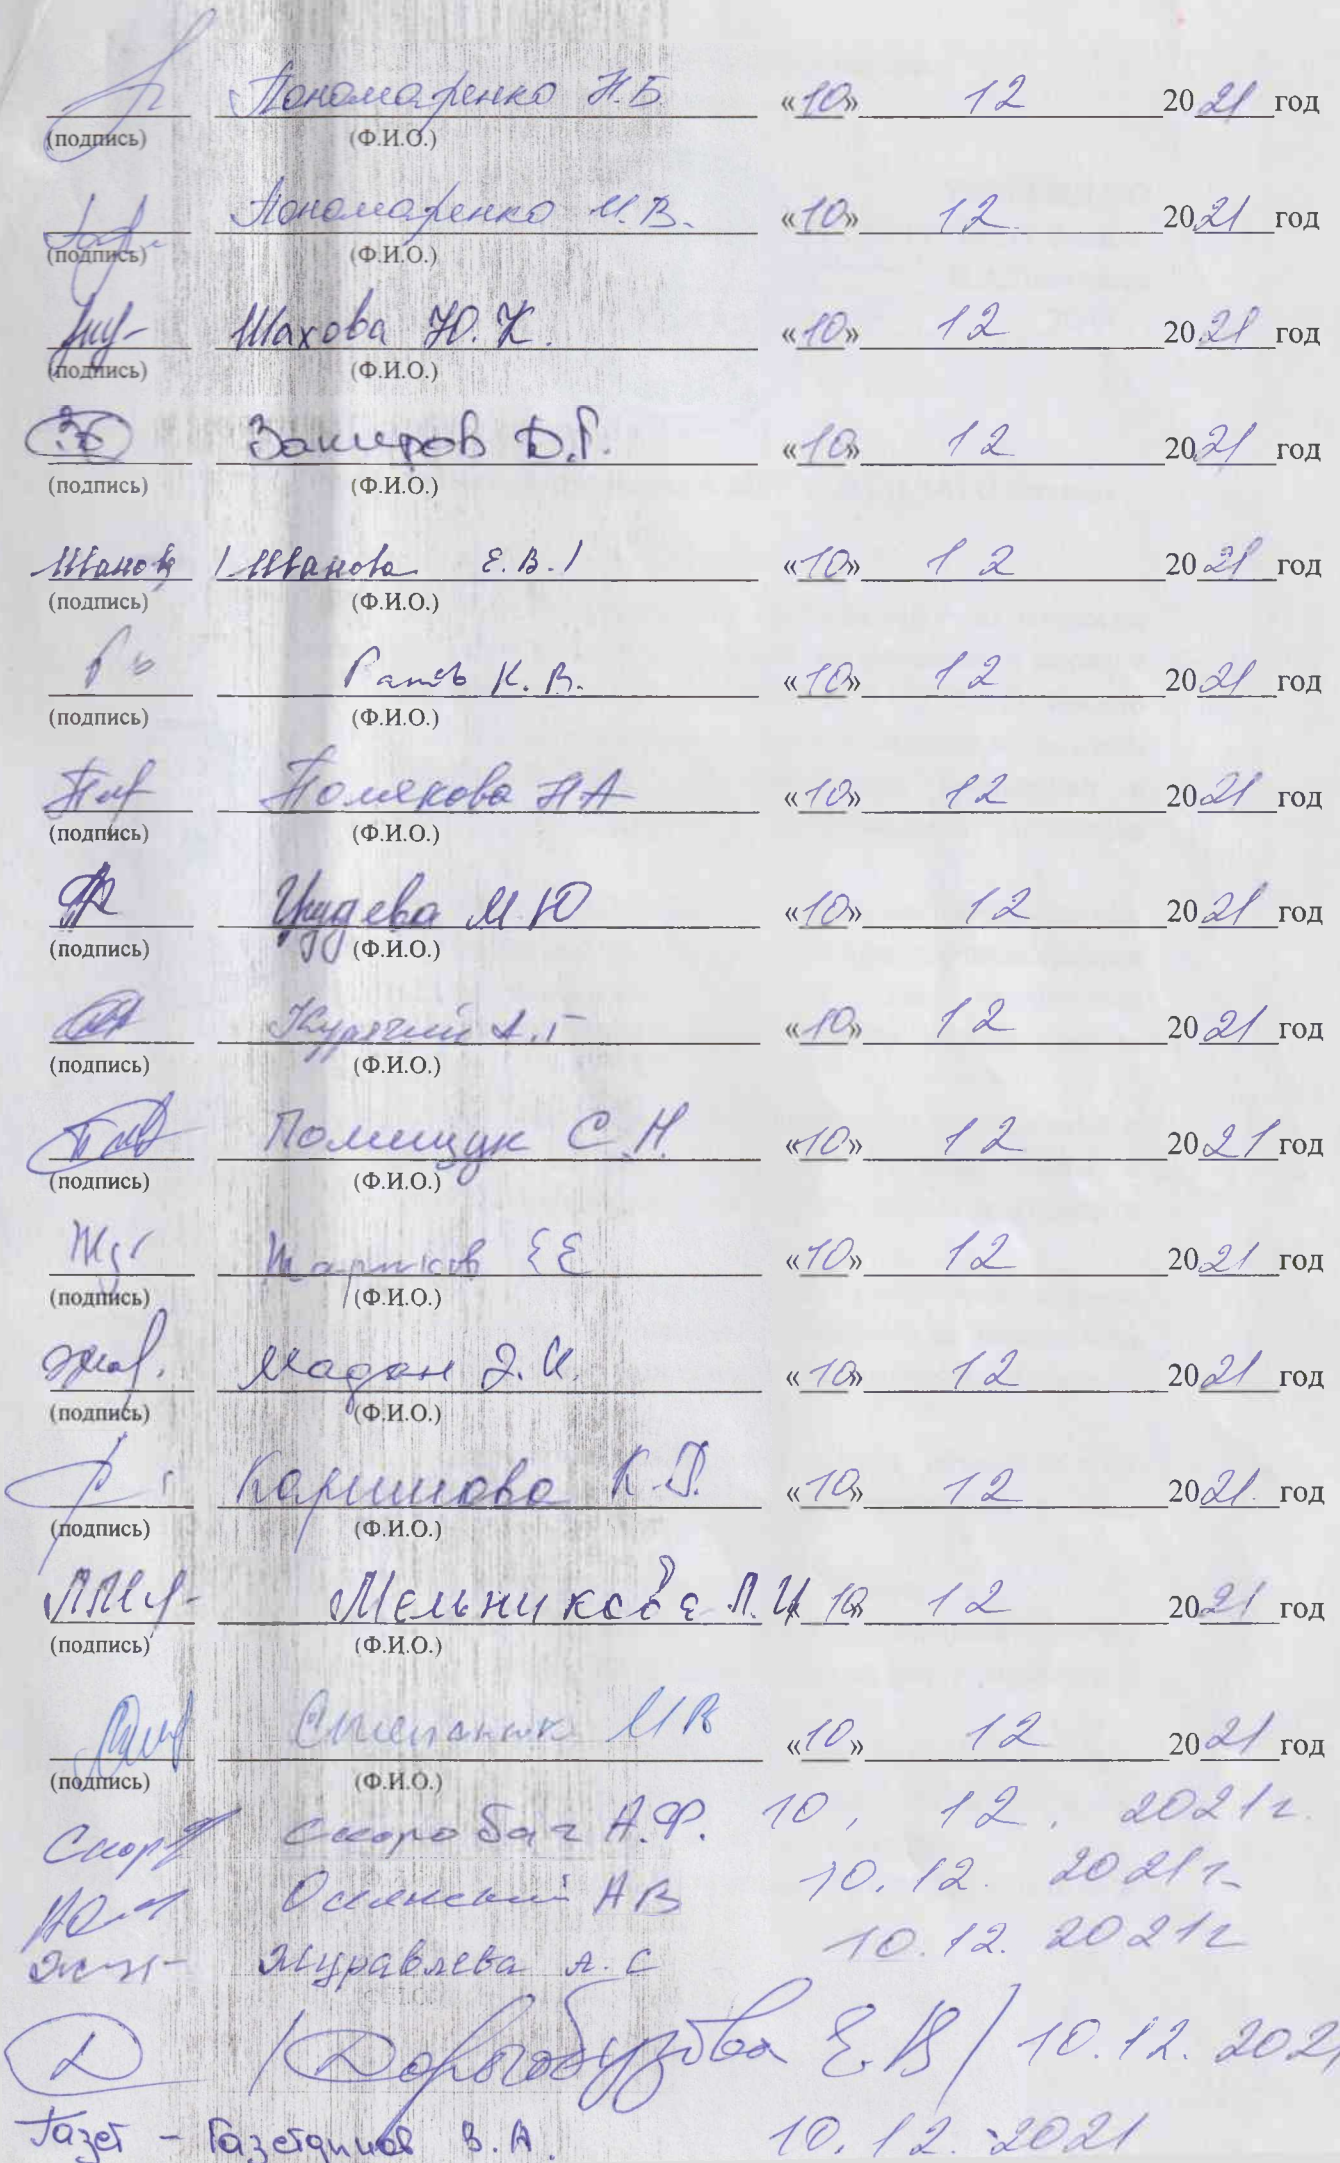 Пономаренко Н.Б «10» 12 2021 год
(подпись) (Ф.И.О.)
Пономаренко И.В. «10» 12 2021 год
(подпись) (Ф.И.О.)
Шахова Ю.К. «10» 12 2021 год
(подпись) (Ф.И.О.)
Закиров Д.Г. «10» 12 2021 год
(подпись) (Ф.И.О.)
Иванова /Иванова Е.В./ «10» 12 2021 год
(подпись) (Ф.И.О.)
К.В. «10» 12 2021 год
(подпись) (Ф.И.О.)
Полякова НА «10» 12 2021 год
(подпись) (Ф.И.О.)
М Ю «10» 12 2021 год
(подпись) (Ф.И.О.)
А.Г «10» 12 2021 год
(подпись) (Ф.И.О.)
Полищук С.Н. «10» 12 2021 год
(подпись) (Ф.И.О.)
ЕЕ «10» 12 2021 год
(подпись) (Ф.И.О.)
Мадан Э.И. «10» 12 2021 год
(подпись) (Ф.И.О.)
Каримова К.Д. «10» 12 2021 год
(подпись) (Ф.И.О.)
Мельникова Л.И 10» 12 2021 год
(подпись) (Ф.И.О.)
Степанюк МВ «10» 12 2021 год
(подпись) (Ф.И.О.)
Скоробач А.Ф. 10. 12. 2021г.
АВ 10.12. 2021г
Журавлева А.С 10.12. 2021г
Д /Дорогобузова Е.В/ 10.12.2021
Газет - Газетдинов В.А. 10.12.2021